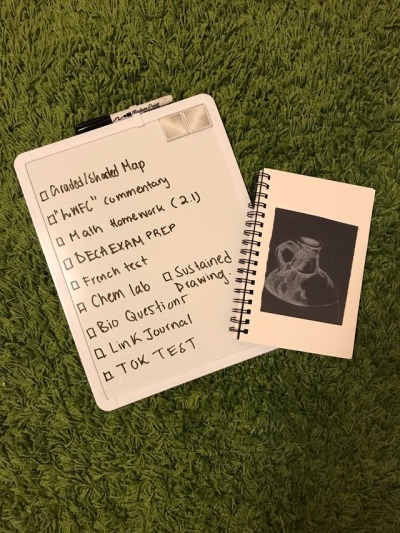 Graded/Shaded Map
"WMFC" commentary
Math Homework (2.1)
DECA EXAM PREP
French test
Chem lab
Sustained
Drawing.
Bio Questions
Link Journal
TOK TEST